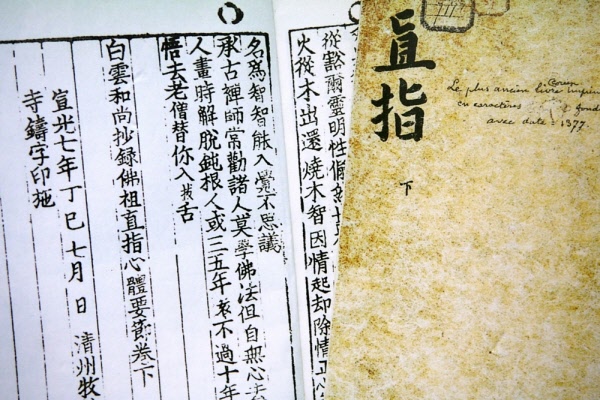 直指
下
Le plus ancien livre Coréen imprim
en caractères fond
avec date = 1377.
從豁爾靈明性
火從木出還燒木智因情起却除情正心
名爲智智能入覺不思議
承古禪師常勸諸人莫學佛法但自無心去
人晝時解脫鈍根人或三五年遠不過十年
悟去老僧替你入拔舌
白雲和尚抄錄佛祖直指心體要節卷下
宣光七年丁巳七月 日 清州牧
寺鑄字印施